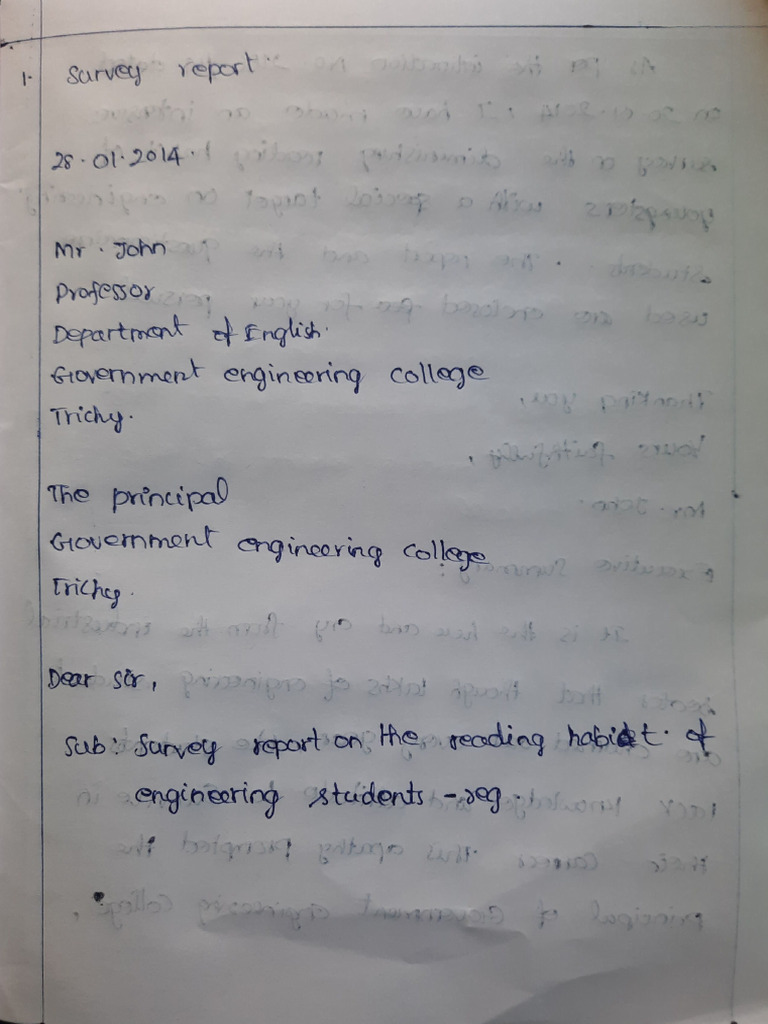 1. Survey report
28.01.2014.
Mr. John
Professor
Department of English.
Government engineering college
Trichy.
The principal
Government engineering college
Trichy.
Dear sir,
Sub: Survey report on the reading habit. of
engineering students -reg.